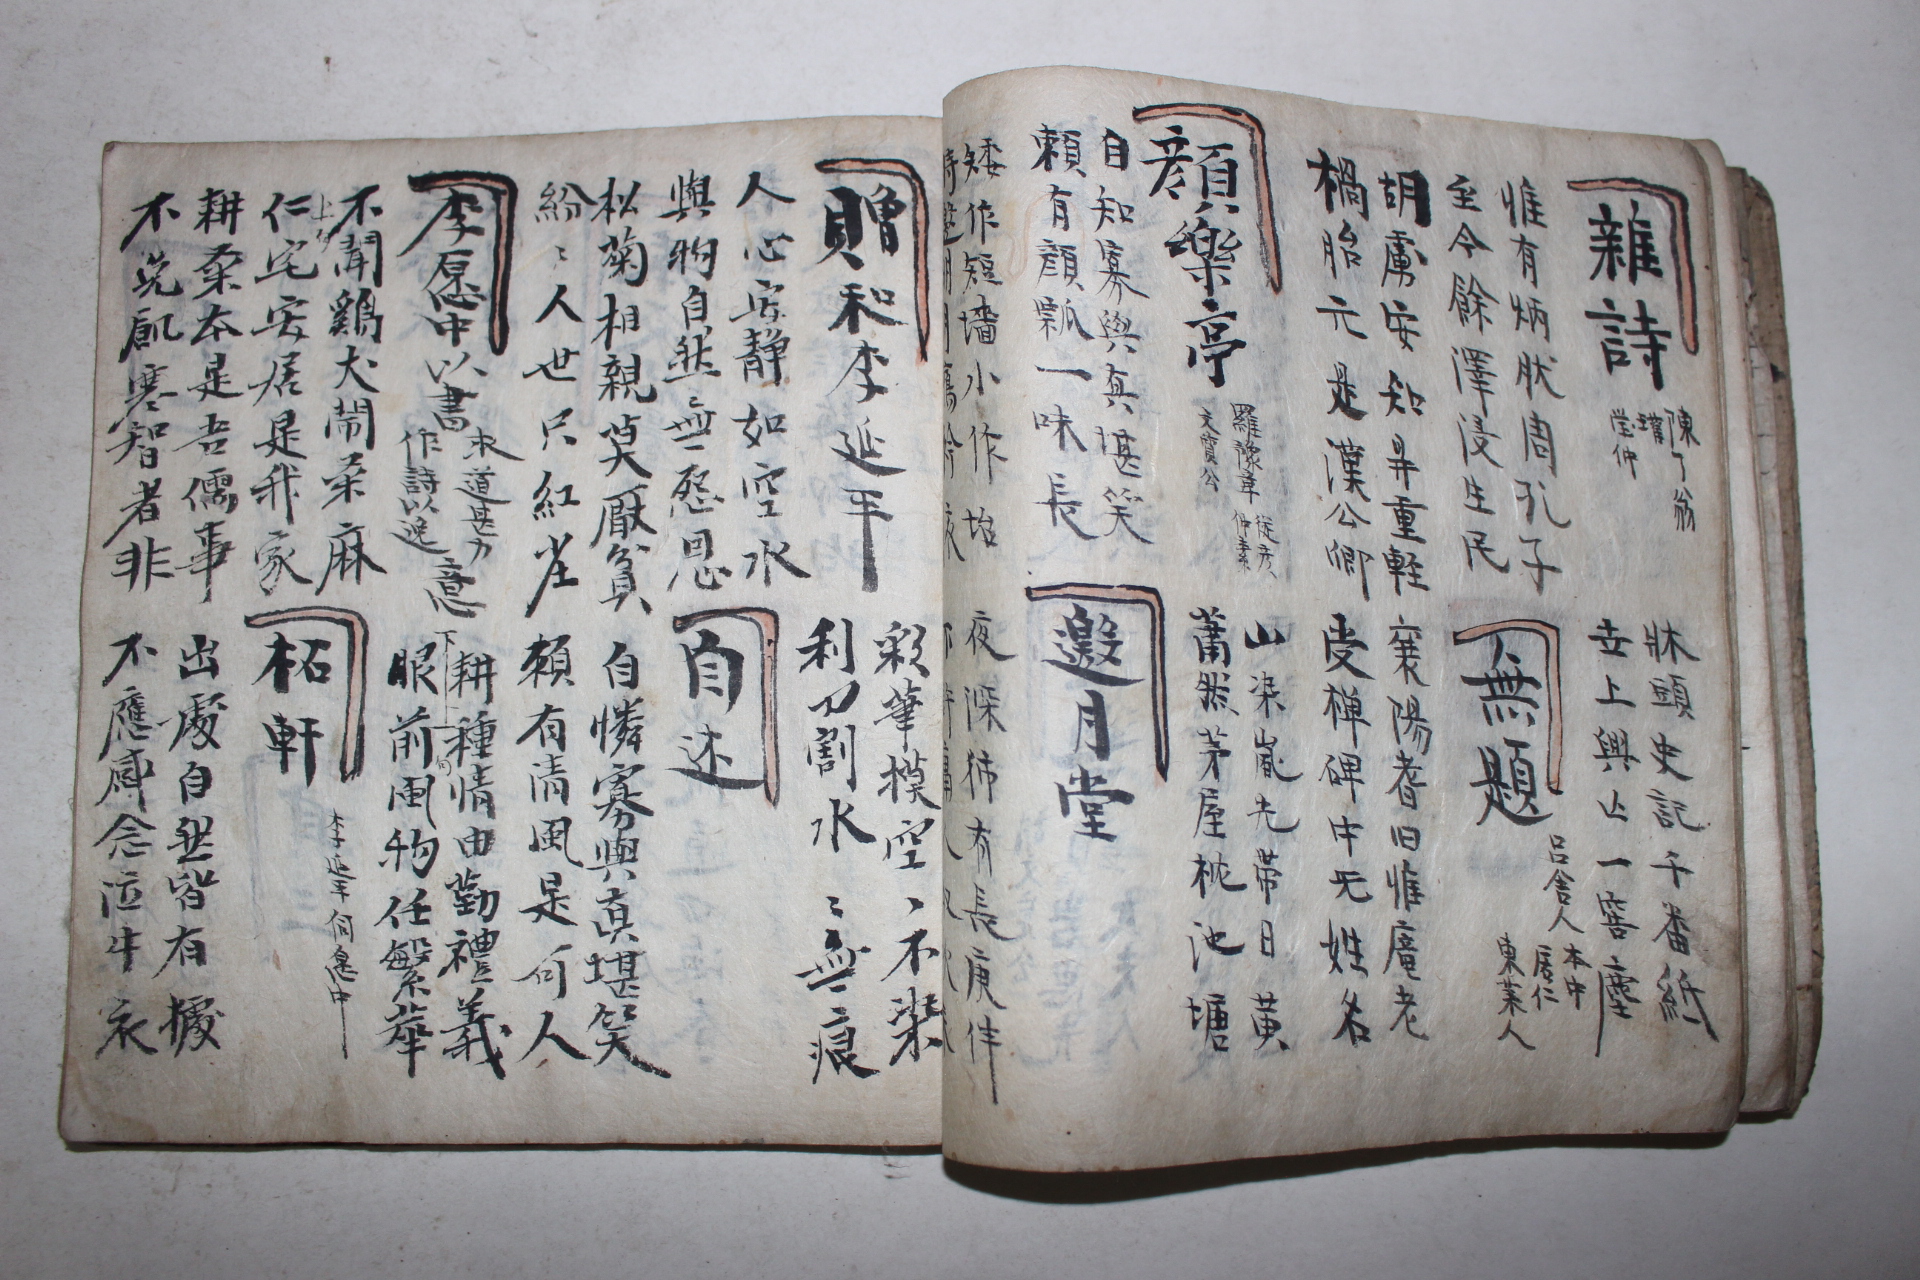 雜詩
陳了翁
瓘瑩仲
牀頭史記千番紙
世上興亡一窖塵
惟有炳然周孔子
至今餘澤浸生民
無題
呂舍人
本中
居仁
東萊人
胡虜安知鼎重輕
禍胎元是漢公卿
襄陽耆旧惟龐老
受禅碑中无姓名
顏樂亭
羅豫章
從彦
仲素
文質公
山染嵐光帶日黃
蕭然茅屋枕池塘
自知寡與真堪笑
賴有顏瓢一味長
邀月堂
矮作短墻小作坮
時邀明月
夜深 有長庚伴
贈和李延平
彩筆摸空丶不染
利刀割水〻無痕
人心安静如空水
與物自然〻無怨恩
自述
松菊相親莫厭貧
紛〻人世只紅
自憐寡與真堪笑
賴有清風是何人
李愿中以書
求道甚力
作詩以送
意
耕種情由勤禮義
眼前風物任繁華
不聞鷄犬鬧桑麻
仁宅安居是我家
柘軒
李延平侗愿中
耕桑本是吾儒事
不免飢寒智者非
出處自然皆有據
不應感念泣牛衣